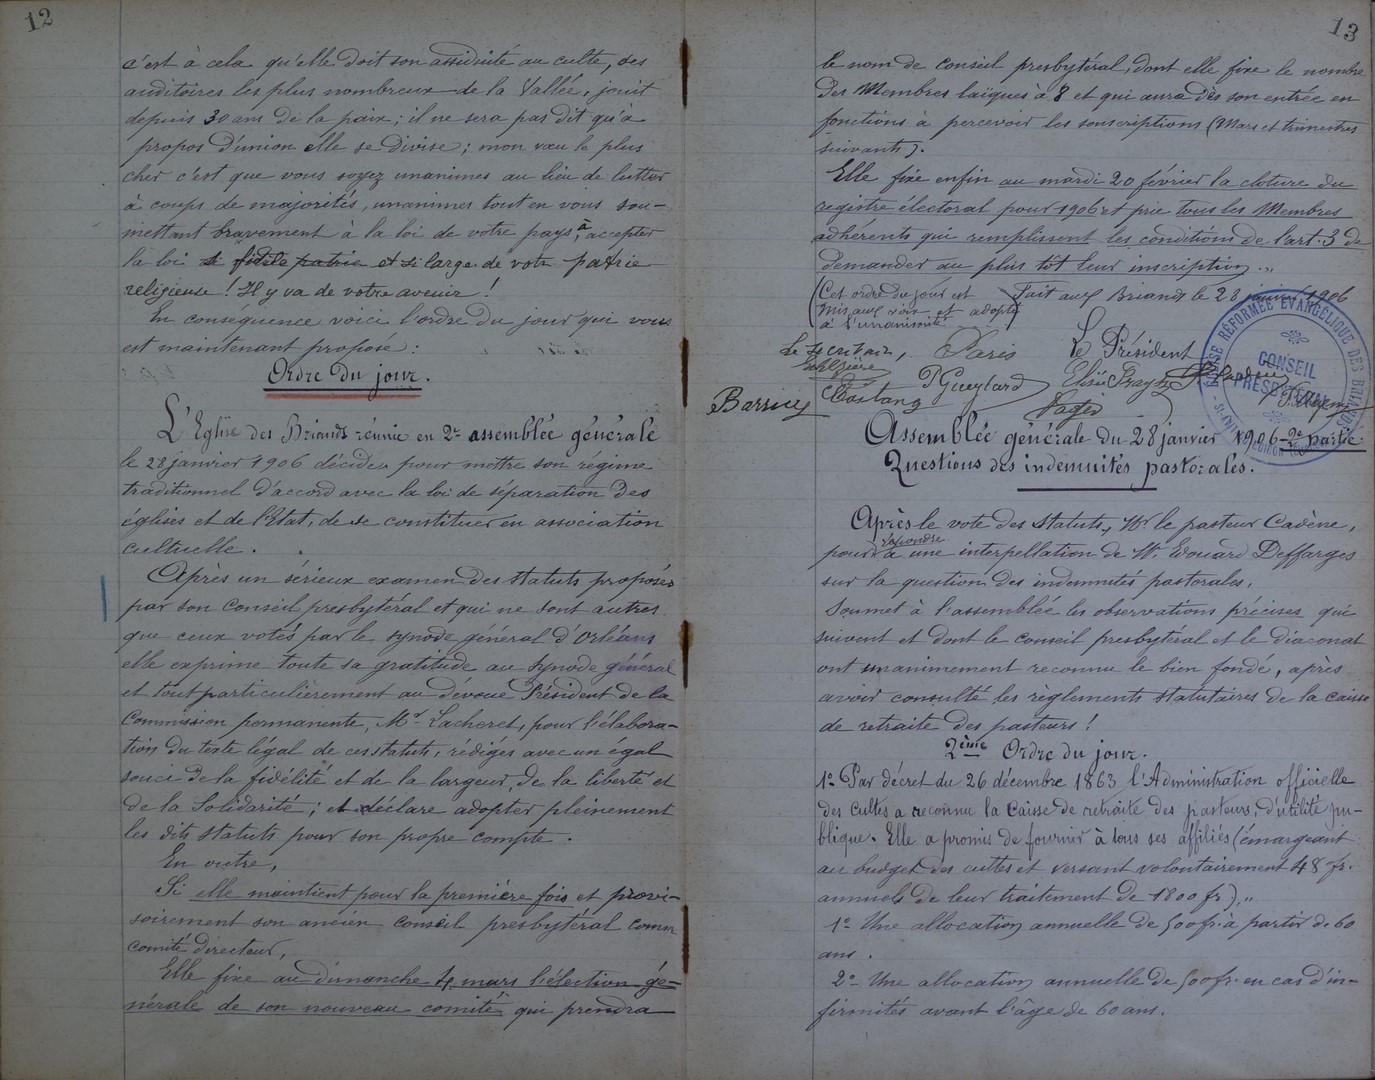 12
c'est à cela qu'elle doit son assiduité au culte, ses
auditoires les plus nombreux de la Vallée, jouit
depuis 30 ans de la paix ; il ne sera pas dit qu'à
propos d'union elle se divise ; mon vœu le plus
cher c'est que vous soyez unanimes au lieu de lutter
à coups de majorités, unanimes tout en vous sou-
mettant bravement à la loi de votre pays, à accepter
la loi si fidèle patrie et si large de votre patrie
religieuse ! Il y va de votre avenir !
En conséquence voici l'ordre du jour qui vous
est maintenant proposé :
Ordre du jour.
L'Eglise des Briands réunie en 2e assemblée générale
le 28 janvier 1906 décide, pour mettre son régime
traditionnel d'accord avec la loi de séparation des
églises et de l'Etat, de se constituer en association
cultuelle.
Après un sérieux examen des statuts proposés
par son Conseil presbytéral et qui ne sont autres
que ceux votés par le synode général d'Orléans
elle exprime toute sa gratitude au synode général
et tout particulièrement au dévoué Président de la
Commission permanente, Mr Lacheret, pour l'élabora-
tion du texte légal de ces statuts, rédigés avec un égal
souci de la fidélité et de la largeur, de la liberté et
de la Solidarité ; et déclare adopter pleinement
les dits statuts pour son propre compte.
En outre,
Si elle maintient pour la première fois et provi-
soirement son ancien conseil presbytéral comme
comité directeur,
Elle fixe au dimanche 4 mars l'élection gé-
nérale de son nouveau comité qui prendra
13
le nom de Conseil presbytéral, dont elle fixe le nombre
des Membres laïques à 8 et qui aura dès son entrée en
fonctions à percevoir les souscriptions (Mars et trimestres
suivants).
Elle fixe enfin au mardi 20 février la cloture du
registre électoral pour 1906 et prie tous les Membres
adhérents qui remplissent les conditions de l'art. 3 de
demander au plus tôt leur inscription.,,
(Cet ordre du jour est
mis aux voix et adopté
à l'unanimité)
Fait aux Briands le 28 janvier 1906
Le Secrétaire, Paris Le Président
P Gueylard
Barriey
Assemblée générale du 28 janvier 1906 - 2e partie.
Questions des indemnités pastorales.
ÉGLISE RÉFORMÉE ÉVANGÉLIQUE DES BRIANDS
CONSEIL
PRESBYTÉRAL
Après le vote des Statuts, Mr le pasteur Cadène,
répondre
pour à une interpellation de M. Edouard Deffarges
sur la question des indemnités pastorales,
Soumet à l'assemblée les observations précises qui
suivent et dont le Conseil presbytéral et le diaconat
ont unanimement reconnu le bien fondé, après
avoir consulté les règlements statutaires de la caisse
de retraite des pasteurs !
2ème Ordre du jour.
1° Par décret du 26 décembre 1863 l'Administration officielle
des Cultes a reconnu la Caisse de retraite des pasteurs, d'utilité pu-
blique. Elle a promis de fournir à tous ses affiliés (émargeant
au budget des cultes et versant volontairement 48 fr.
annuels de leur traitement de 1800 fr).,,
1° Une allocation annuelle de 500 fr. à partir de 60
ans.
2° Une allocation annuelle de 500 fr. en cas d'in-
firmités avant l'âge de 60 ans.